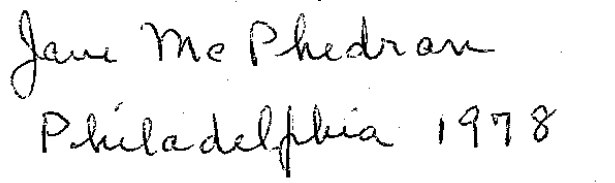 Jane McPhedran
Philadelphia 1978